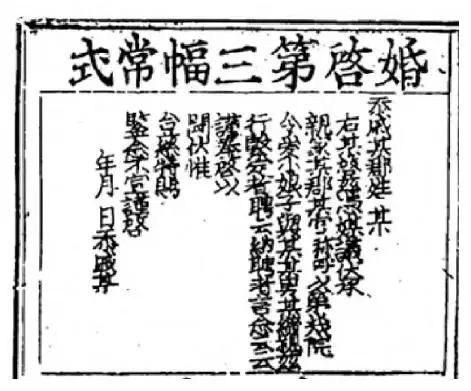 婚啓第三幅常式
忝戚某郡姓 某
右某茲憑媒議伏承
親家某郡某官稱呼以第幾院
令愛娘子與某男某締親茲
行聘云納聘者言云云
謹奉啓以
聞伏惟
台慈特賜
鑒念不宣謹啓
年月 日忝戚某